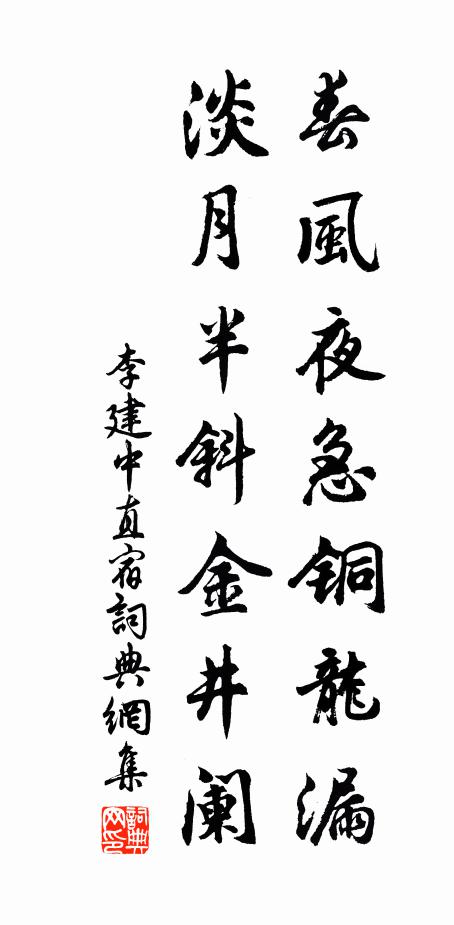 春風夜急銅龍漏
淡月半斜金井闌
李建中直宿詞典網集
詞典網印